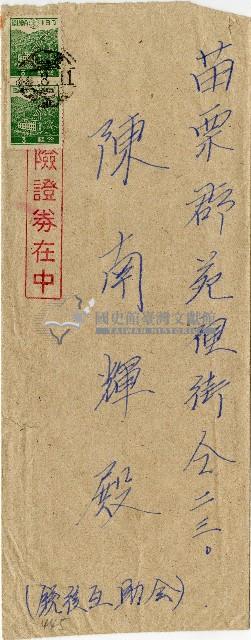 苗栗郡苑裡街仝二三。
陳南輝殿
險證券在中
國史館臺灣文獻館
TAIWAN HISTORICA
互助会)
445